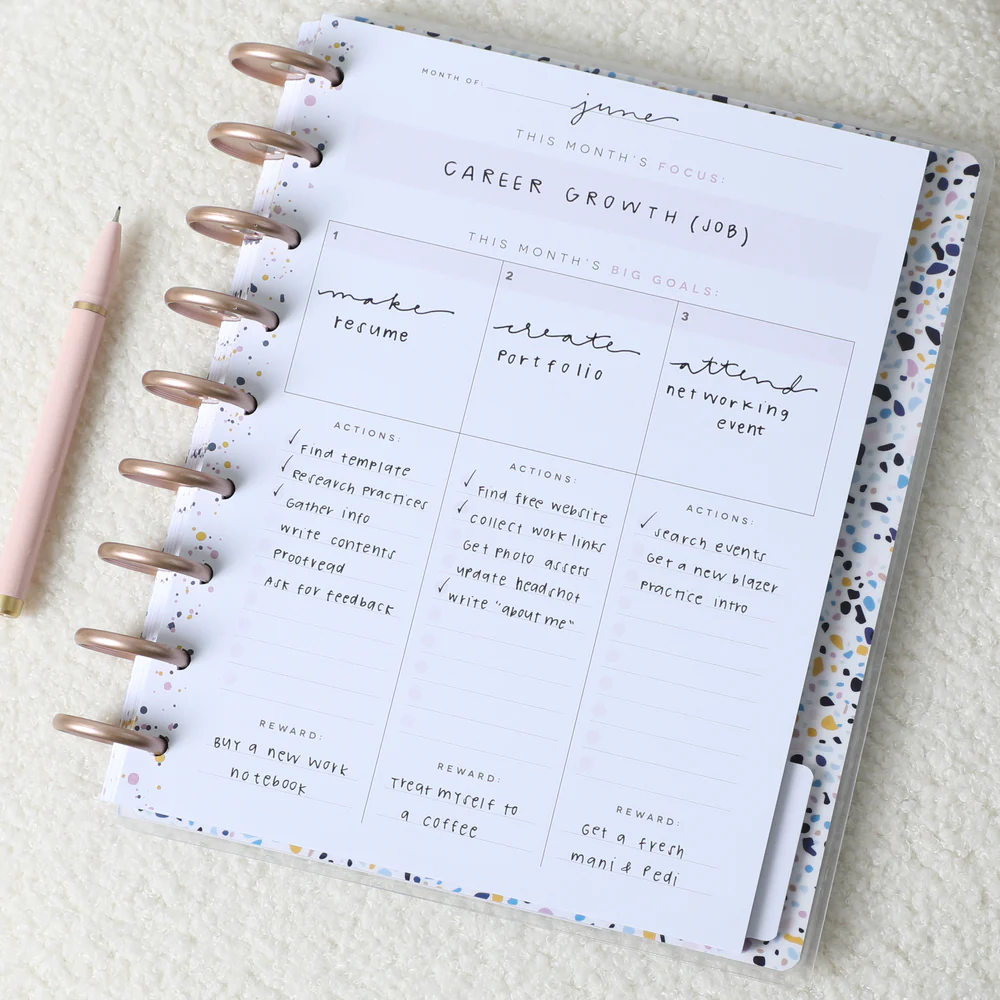 MONTH OF: june
THIS MONTH'S FOCUS:
CAREER GROWTH (JOB)
THIS MONTH'S BIG GOALS:
1
make
resume
ACTIONS:
Find template
Research Practices
Gather info
write contents
Proofread
Ask for feedback
REWARD:
Buy a new work
notebook
2
create
Portfolio
ACTIONS:
Find free website
collect work links
Get Photo assets
update headshot
write "about me"
REWARD:
Treat myself to
a coffee
3
attend
networking
event
ACTIONS:
search events
Get a new blazer
Practice intro
REWARD:
Get a fresh
mani & Pedi